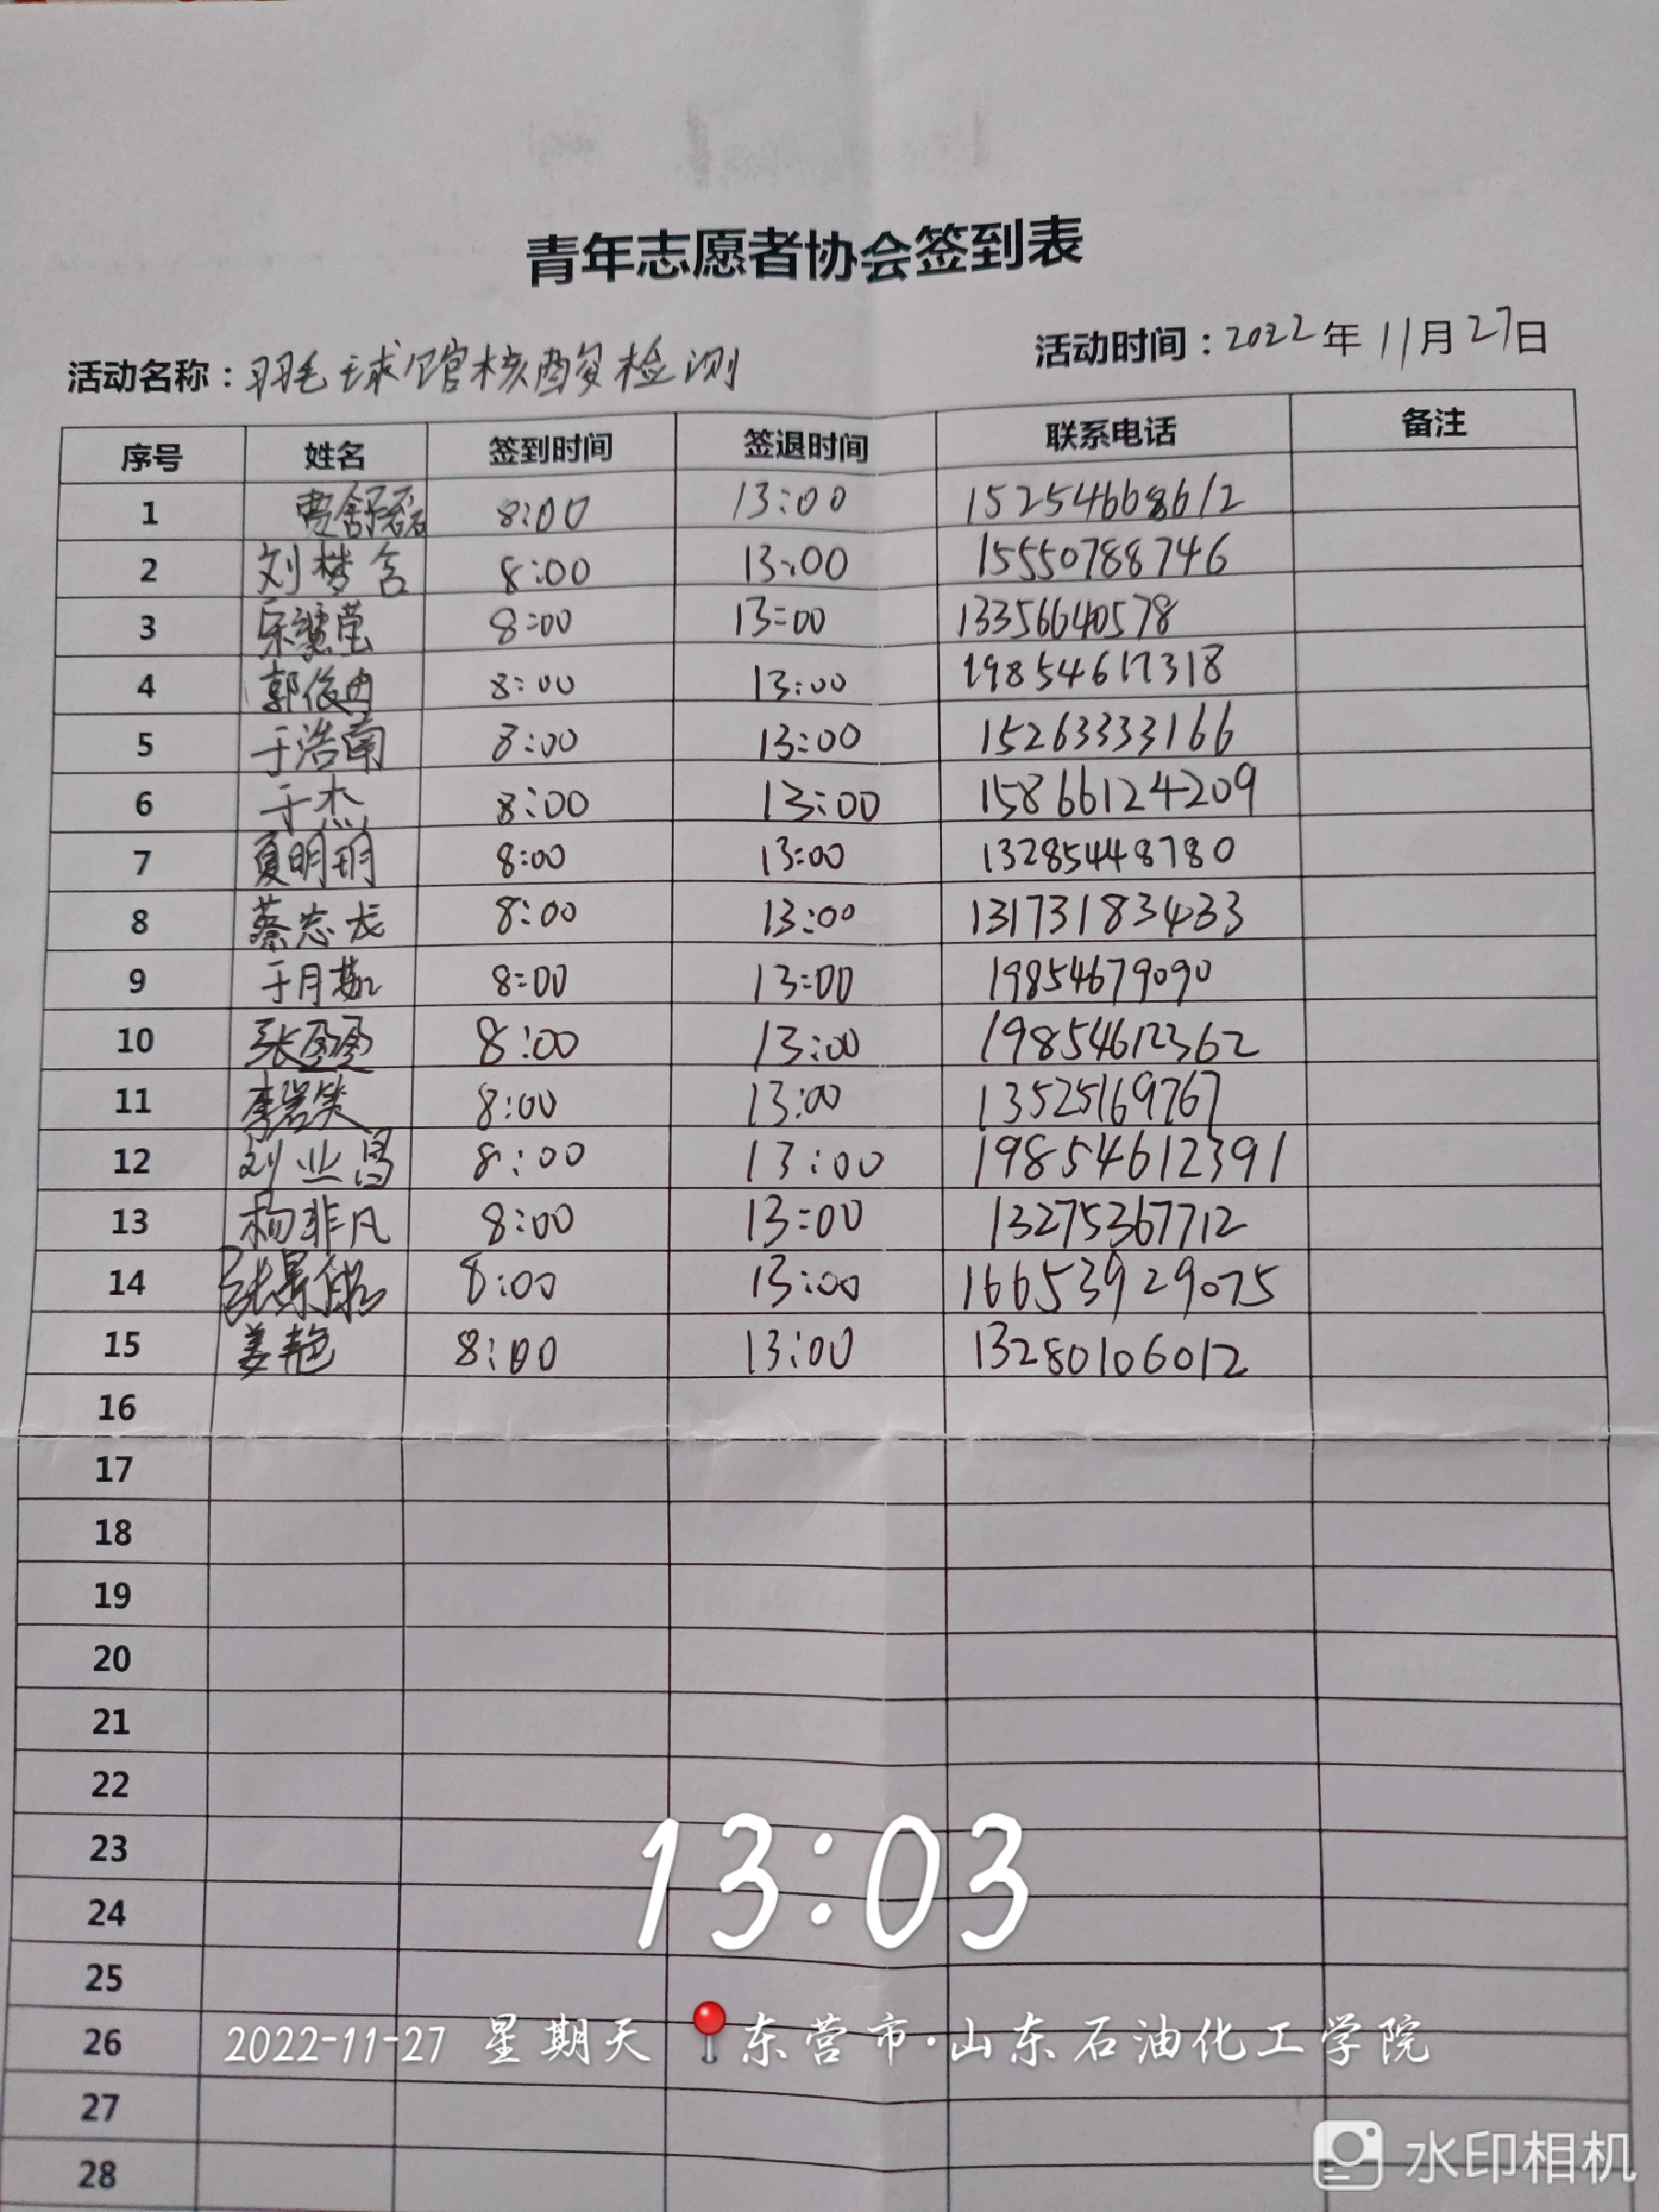 青年志愿者协会签到表
活动名称：羽毛球馆核酸检测 活动时间：2022年11月27日
序号 姓名 签到时间 签退时间 联系电话 备注
1 费舒磊 8:00 13:00 15254668612
2 刘梦含 8:00 13:00 15550788746
3 8:00 13:00 13356640578
4 郭俊冉 8:00 13:00 19854617318
5 于浩南 8:00 13:00 15263333166
6 于杰 8:00 13:00 15866124209
7 夏明玥 8:00 13:00 13285448780
8 蔡志龙 8:00 13:00 13173183433
9 8:00 13:00 19854679090
10 张盈盈 8:00 13:00 19854612362
11 李岩笑 8:00 13:00 13525169767
12 刘业昌 8:00 13:00 19854612391
13 杨非凡 8:00 13:00 13275367712
14 8:00 13:00 16653929075
15 姜艳 8:00 13:00 13280106012
16
17
18
19
20
21
22
23
24
25
26
27
28
13:03
2022-11-27 星期天 东营市·山东石油化工学院
水印相机